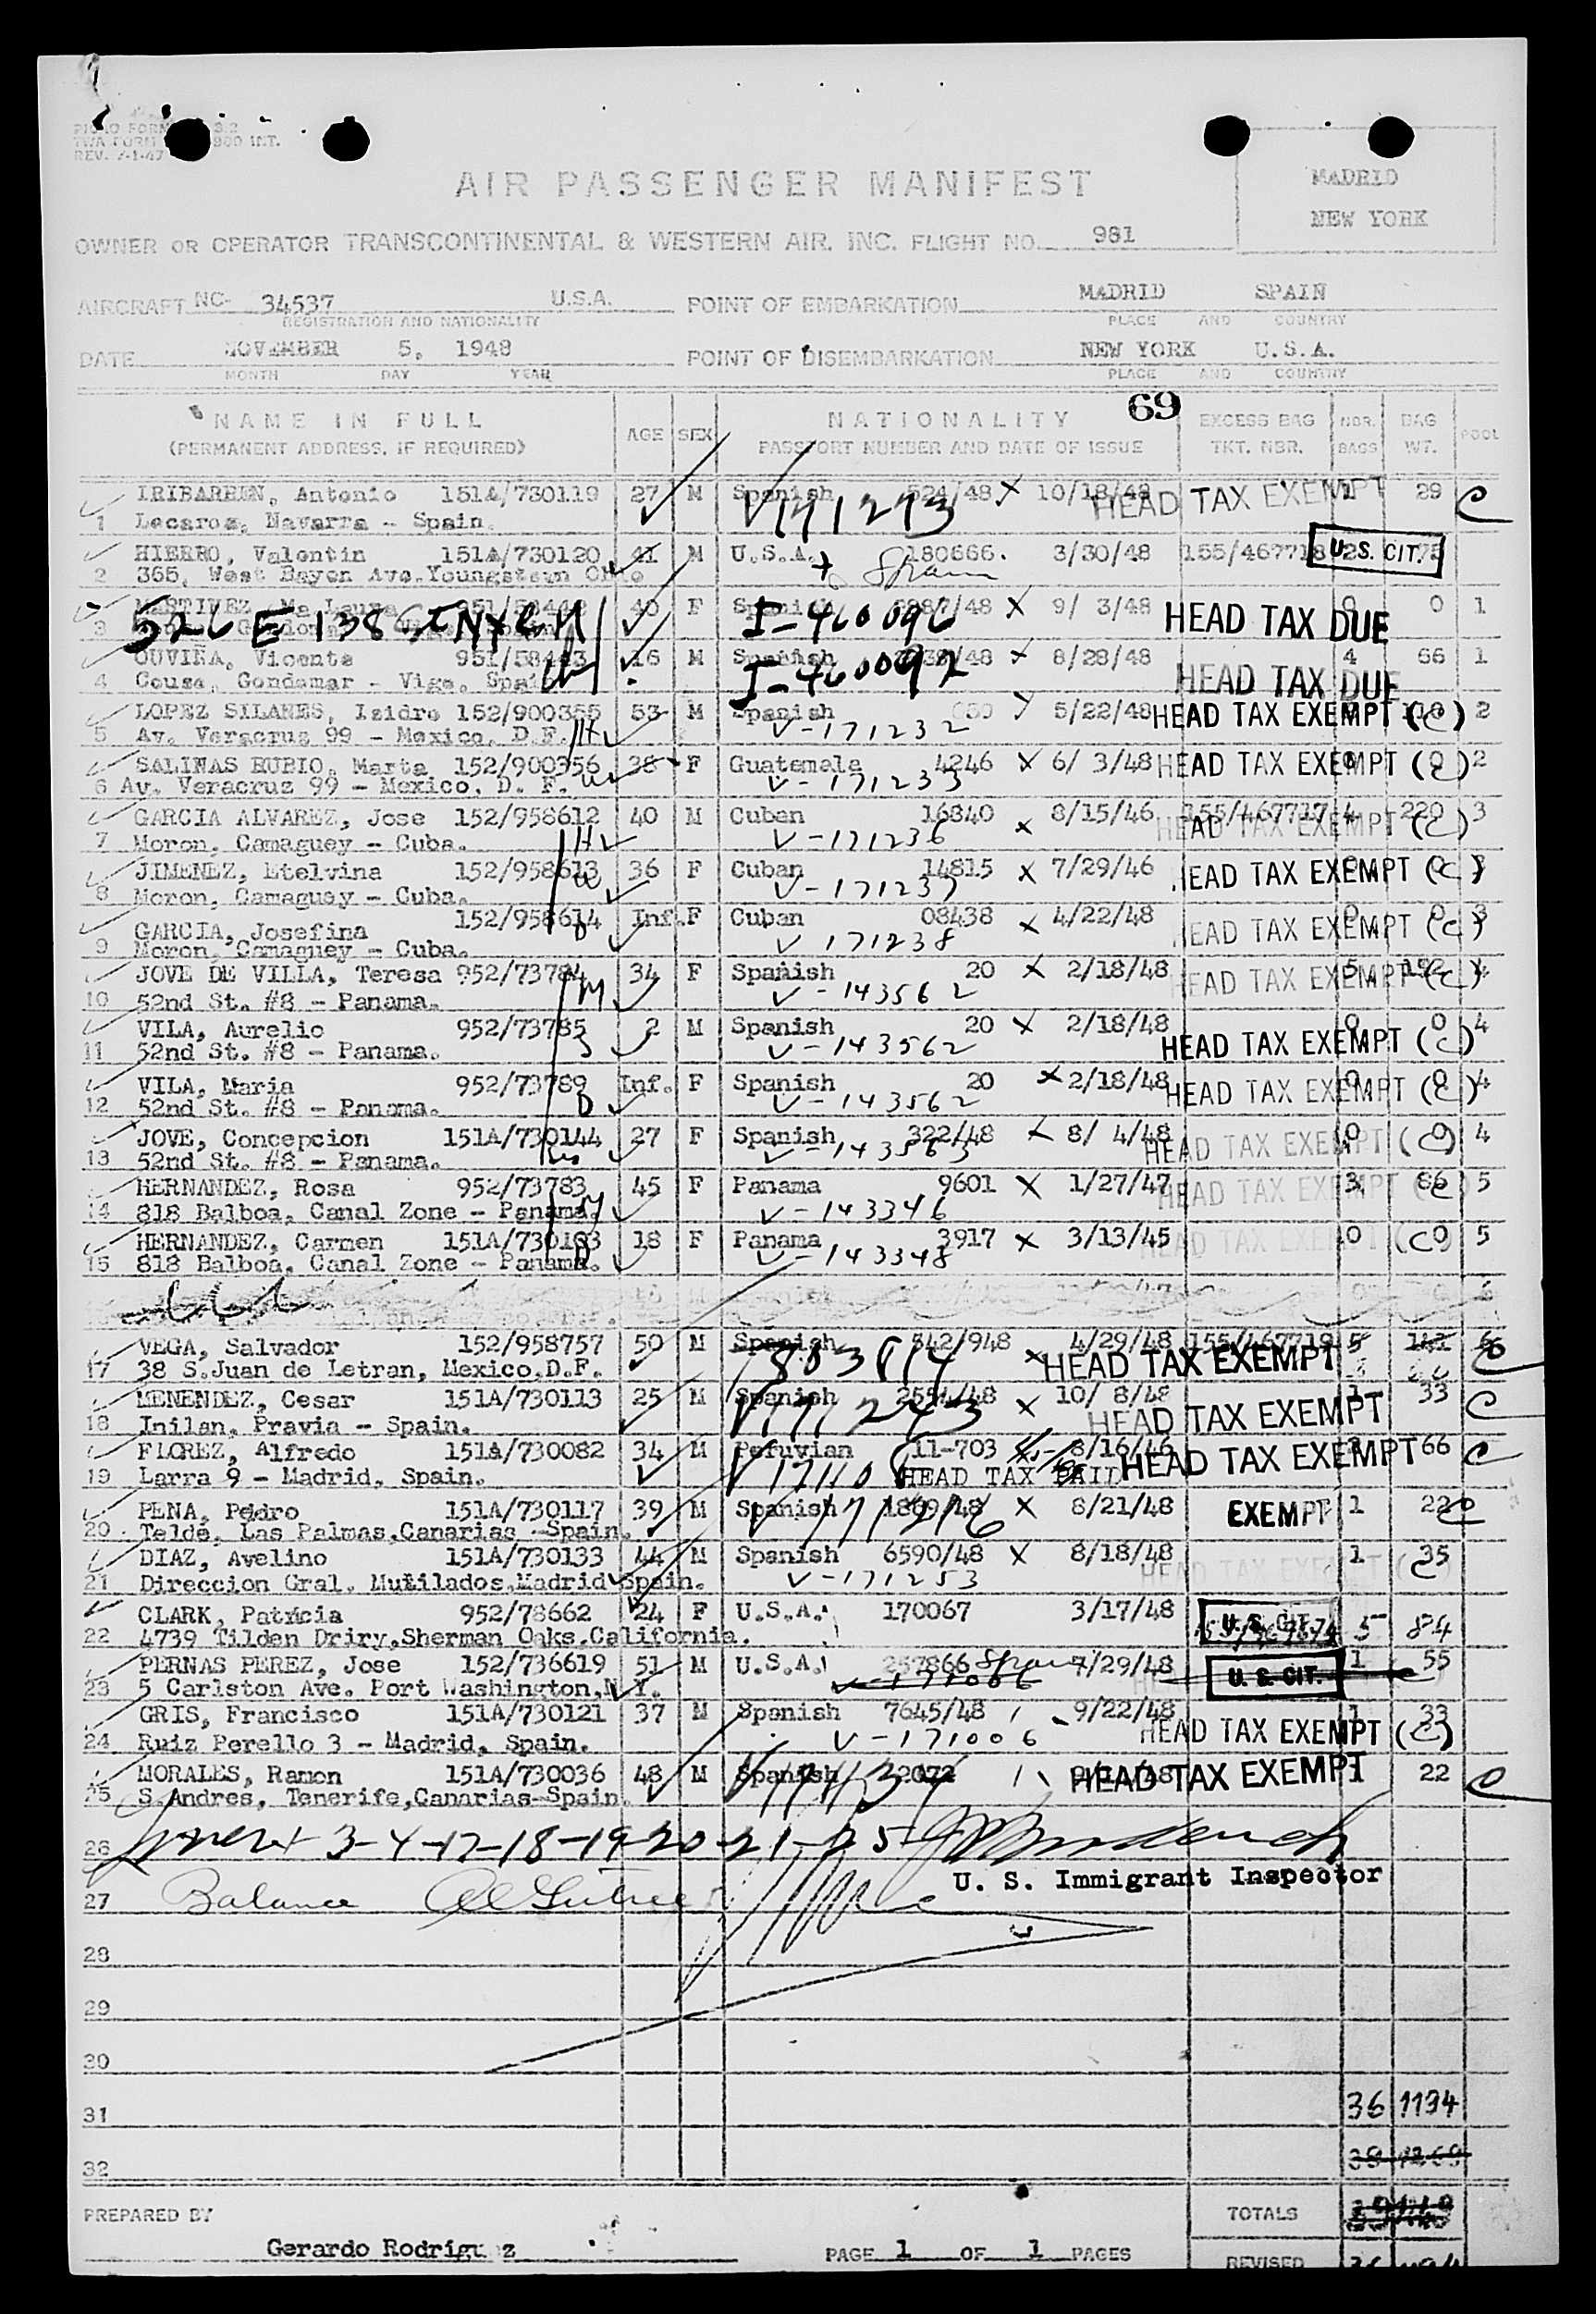 REV. 7-1-47
AIR PASSENGER MANIFEST
MADRID
NEW YORK
OWNER OR OPERATOR TRANSCONTINENTAL & WESTERN AIR. INC. FLIGHT NO. 981
AIRCRAFT NC- 34537 U.S.A. POINT OF EMBARKATION MADRID SPAIN
REGISTRATION AND NATIONALITY PLACE AND COUNTRY
DATE NOVEMBER 5, 1948 POINT OF DISEMBARKATION NEW YORK U.S.A.
MONTH DAY YEAR PLACE AND COUNTRY
69
NAME IN FULL AGE SEX NATIONALITY EXCESS BAG NBR. BAG POOL
(PERMANENT ADDRESS, IF REQUIRED) PASSPORT NUMBER AND DATE OF ISSUE TKT. NBR. BAGS WT.
IRIBARREN, Antonio 151A/730119 27 M Spanish 524/48 X 10/18/48 HEAD TAX EXEMPT 29 C
1 Lecaroz, Navarra - Spain.
HIERRO, Valentin 151A/730120 41 M U.S.A. 180666. 3/30/48 155/467718 U.S. CIT.
2 365, West Bayen Ave. + Spain
F 9/ 3/48 HEAD TAX DUE 0 0 1
3 526 E 138 St I-460096
OUVIÑA, Vicente 16 M Spanish X 8/28/48 4 66 1
4 Couso, Gondomar - Vigo, Spain I-460092 HEAD TAX DUE
LOPEZ SILANES, Isidro 152/900355 53 M Spanish 5/22/48 HEAD TAX EXEMPT (C) 2
5 Av. Veracruz 99 - Mexico, D.F. V-171232
SALINAS RUBIO, Marta 152/900356 38 F Guatemala 4246 X 6/ 3/48 HEAD TAX EXEMPT (C) 2
6 Av. Veracruz 99 - Mexico, D. F. V-171233
GARCIA ALVAREZ, Jose 152/958612 40 M Cuban 16840 X 8/15/46 155/467717 4 220 3
7 Moron, Camaguey - Cuba. V-171236 HEAD TAX EXEMPT (C)
JIMENEZ, Etelvina 152/958613 36 F Cuban 14815 X 7/29/46 HEAD TAX EXEMPT (C) 3
8 Moron, Camaguey - Cuba. V-171237
152/958614 Inf. F Cuban 08438 X 4/22/48 0 0 3
GARCIA, Josefina HEAD TAX EXEMPT (C)
9 Moron, Camaguey - Cuba. V-171238
JOVE DE VILLA, Teresa 952/73784 34 F Spanish 20 X 2/18/48 HEAD TAX EXEMPT (C) 4
10 52nd St. #8 - Panama. V-143562
VILA, Aurelio 952/73785 2 M Spanish 20 X 2/18/48 0 0 4
11 52nd St. #8 - Panama. V-143562 HEAD TAX EXEMPT (C)
VILA, Maria 952/73789 Inf. F Spanish 20 X 2/18/48 HEAD TAX EXEMPT (C) 4
12 52nd St. #8 - Panama. V-143562
JOVE, Concepcion 151A/730144 27 F Spanish 322/48 X 8/ 4/48 0 0 4
13 52nd St. #8 - Panama. V-143563 HEAD TAX EXEMPT (C)
HERNANDEZ, Rosa 952/73783 45 F Panama 9601 X 1/27/47 3 86 5
14 818 Balboa, Canal Zone - Panama. V-143346 HEAD TAX EXEMPT (C)
HERNANDEZ, Carmen 18 F Panama 3917 X 3/13/45 0 (C) 0 5
15 818 Balboa, Canal Zone - Panama. V-143348
VEGA, Salvador 152/958757 50 M Spanish 542/948 X 4/29/48 155/467719 5
17 38 S.Juan de Letran, Mexico,D.F. HEAD TAX EXEMPT
MENENDEZ, Cesar 151A/730113 25 M Spanish 2554/48 X 10/ 8/48 1 33 C
18 Inilan, Pravia - Spain. HEAD TAX EXEMPT
FLOREZ, Alfredo 151A/730082 34 M Peruvian 11-703 8/16/46 HEAD TAX EXEMPT 66 C
19 Larra 9 - Madrid, Spain. HEAD TAX PAID
PENA, Pedro 151A/730117 39 M Spanish 1869/48 X 8/21/48 EXEMPT 1 22 C
20 Telde, Las Palmas,Canarias -Spain.
DIAZ, Avelino 151A/730133 44 M Spanish 6590/48 X 8/18/48 1 35
21 Direccion Gral. Mutilados,Madrid Spain. V-171253 HEAD TAX EXEMPT (C)
CLARK, Patricia 952/78662 24 F U.S.A. 170067 3/17/48 U.S. CIT. 5 84
22 4739 Tilden Driry,Sherman Oaks,California.
PERNAS PEREZ, Jose 152/736619 51 M U.S.A. 257866 Spain 7/29/48 U.S. CIT. 1 55
23 5 Carlston Ave. Port Washington,N.Y. V-171006
GRIS, Francisco 151A/730121 37 M Spanish 7645/48 9/22/48 1 33
24 Ruiz Perello 3 - Madrid, Spain. V-171006 HEAD TAX EXEMPT (C)
MORALES, Ramon 151A/730036 48 M Spanish HEAD TAX EXEMPT 22 C
25 S.Andres, Tenerife,Canarias-Spain.
26 3-4-17-18-19-20-21-25
U. S. Immigrant Inspector
27 Balance
28
29
30
31 36 1134
32
PREPARED BY TOTALS
Gerardo Rodriguez PAGE 1 OF 1 PAGES REVISED